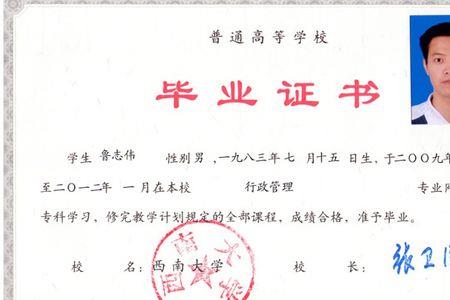 普通高等学校
毕业证书
学生 鲁志伟 性别男,一九八三年七 月十五 日生,于二〇〇九年
至二〇一二年 一 月在本校 行政管理 专业
专科学习,修完教学计划规定的全部课程,成绩合格,准予毕业。
校 名:西南大学 校 长:张卫
西南大学